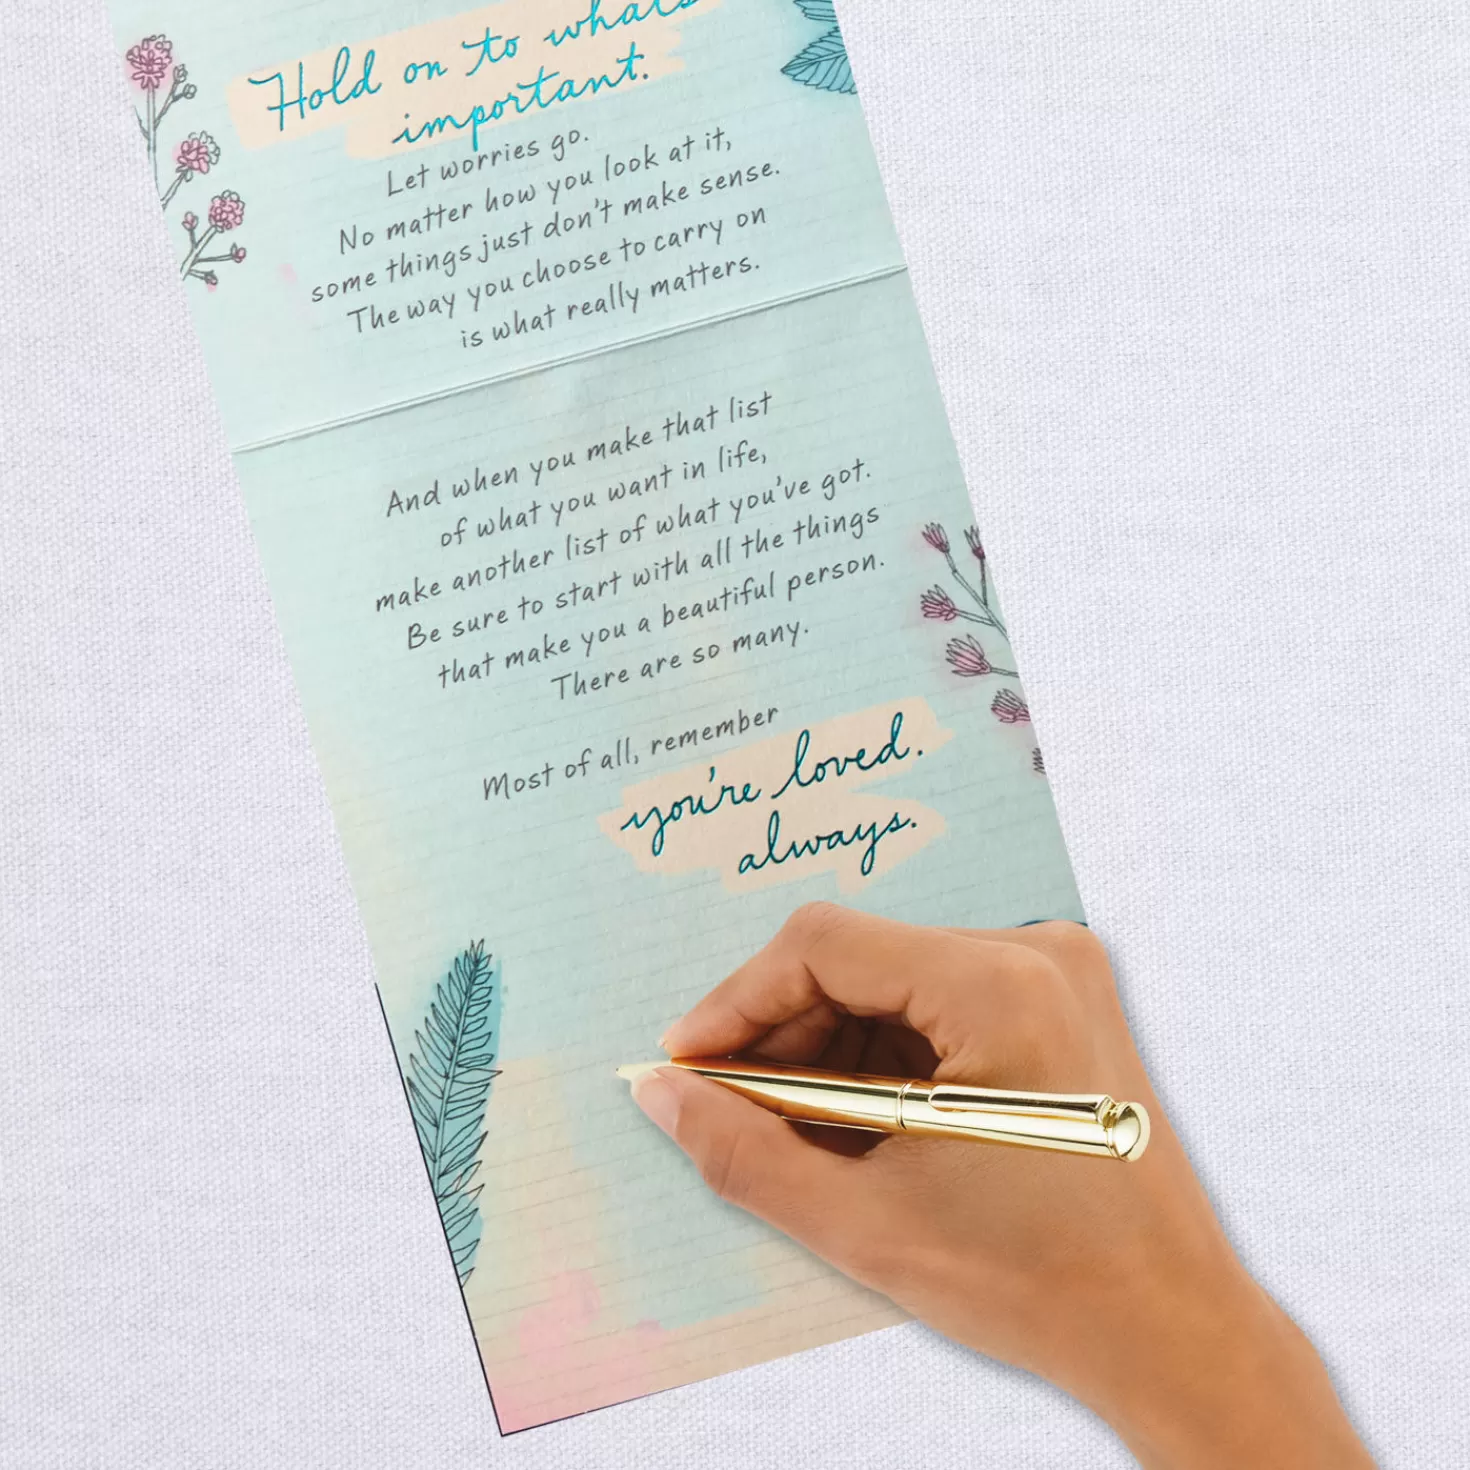 Hold on to what's
important.
Let worries go.
No matter how you look at it,
some things just don't make sense.
The way you choose to carry on
is what really matters.
And when you make that list
of what you want in life,
make another list of what you've got.
Be sure to start with all the things
that make you a beautiful person.
There are so many.
Most of all, remember
you're loved.
always.